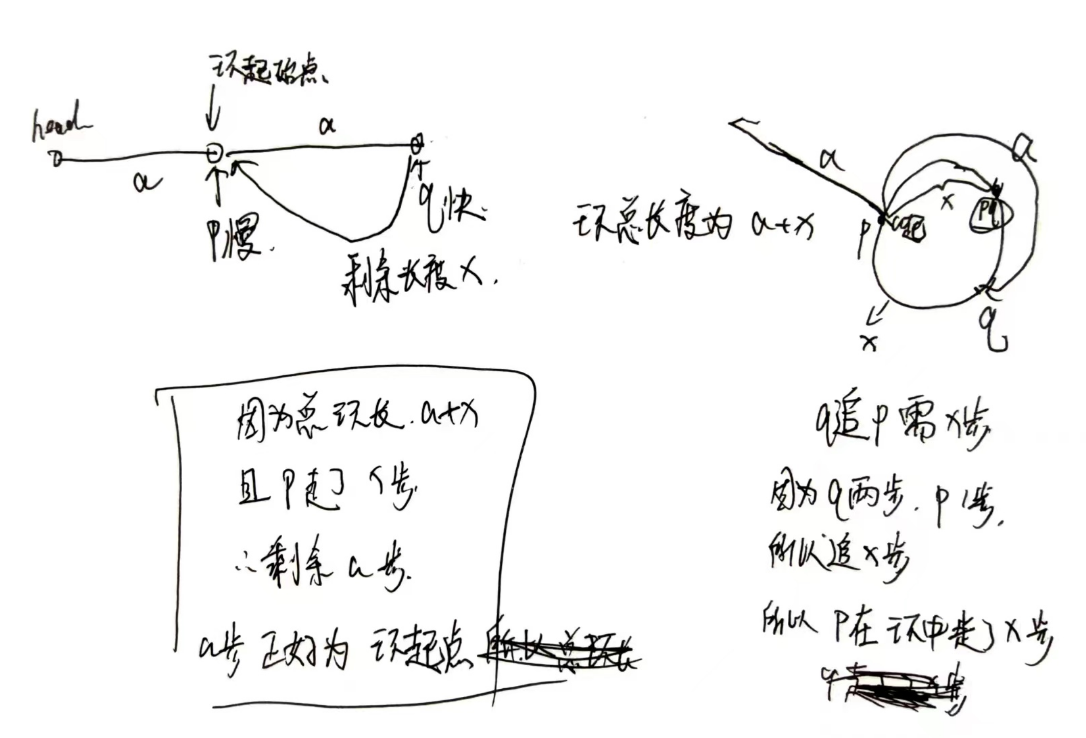 环起始点
head
a
a
P慢
q快
剩余长度x.
环总长度为 a+x
a
a
x
P
q
x
因为总环长 a+x
且P走了x步
∴剩余a步.
a步正好为环起点
q追P需x步
因为q两步,P1步,
所以追x步
所以P在环中走了x步